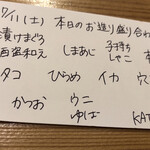 7/11(土) 本日のお造り盛り合わ
漬けまぐろ しまあじ 子持ち
しゃこ
タコ ひらめ イカ ウ
かつお ウニ
ゆば KA